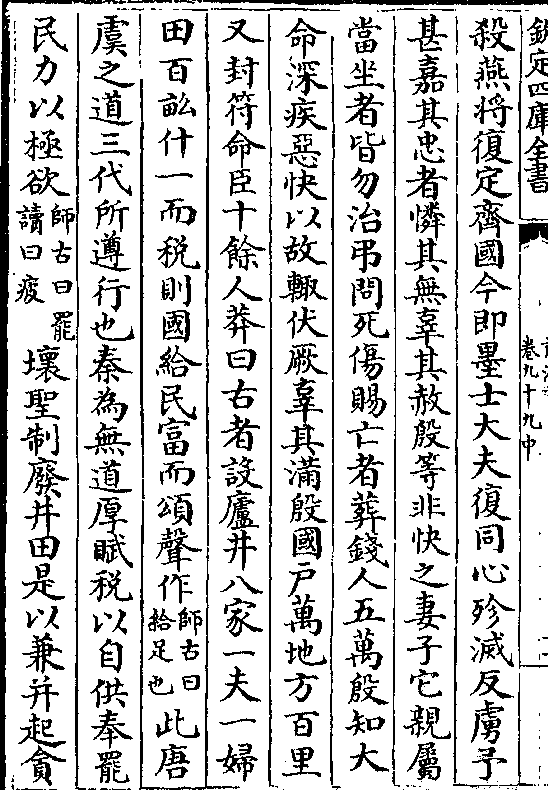 欽定四庫全書
卷九十九中
殺燕将復定齊國今即墨士大夫復同心殄滅反虜予
甚嘉其忠者憐其無辜其赦殷等非快之妻子它親屬
當坐者皆勿治弔問死傷賜亡者葬錢人五萬殷知大
命深疾惡快以故輙伏厥辜其滿殷國戸萬地方百里
又封符命臣十餘人莽曰古者設廬井八家一夫一婦
田百畝什一而税則國給民富而頌聲作師古曰給足也此唐
虞之道三代所遵行也秦為無道厚賦税以自供奉罷
民力以極欲師古曰罷讀曰疲壞聖制廢井田是以兼并起貪